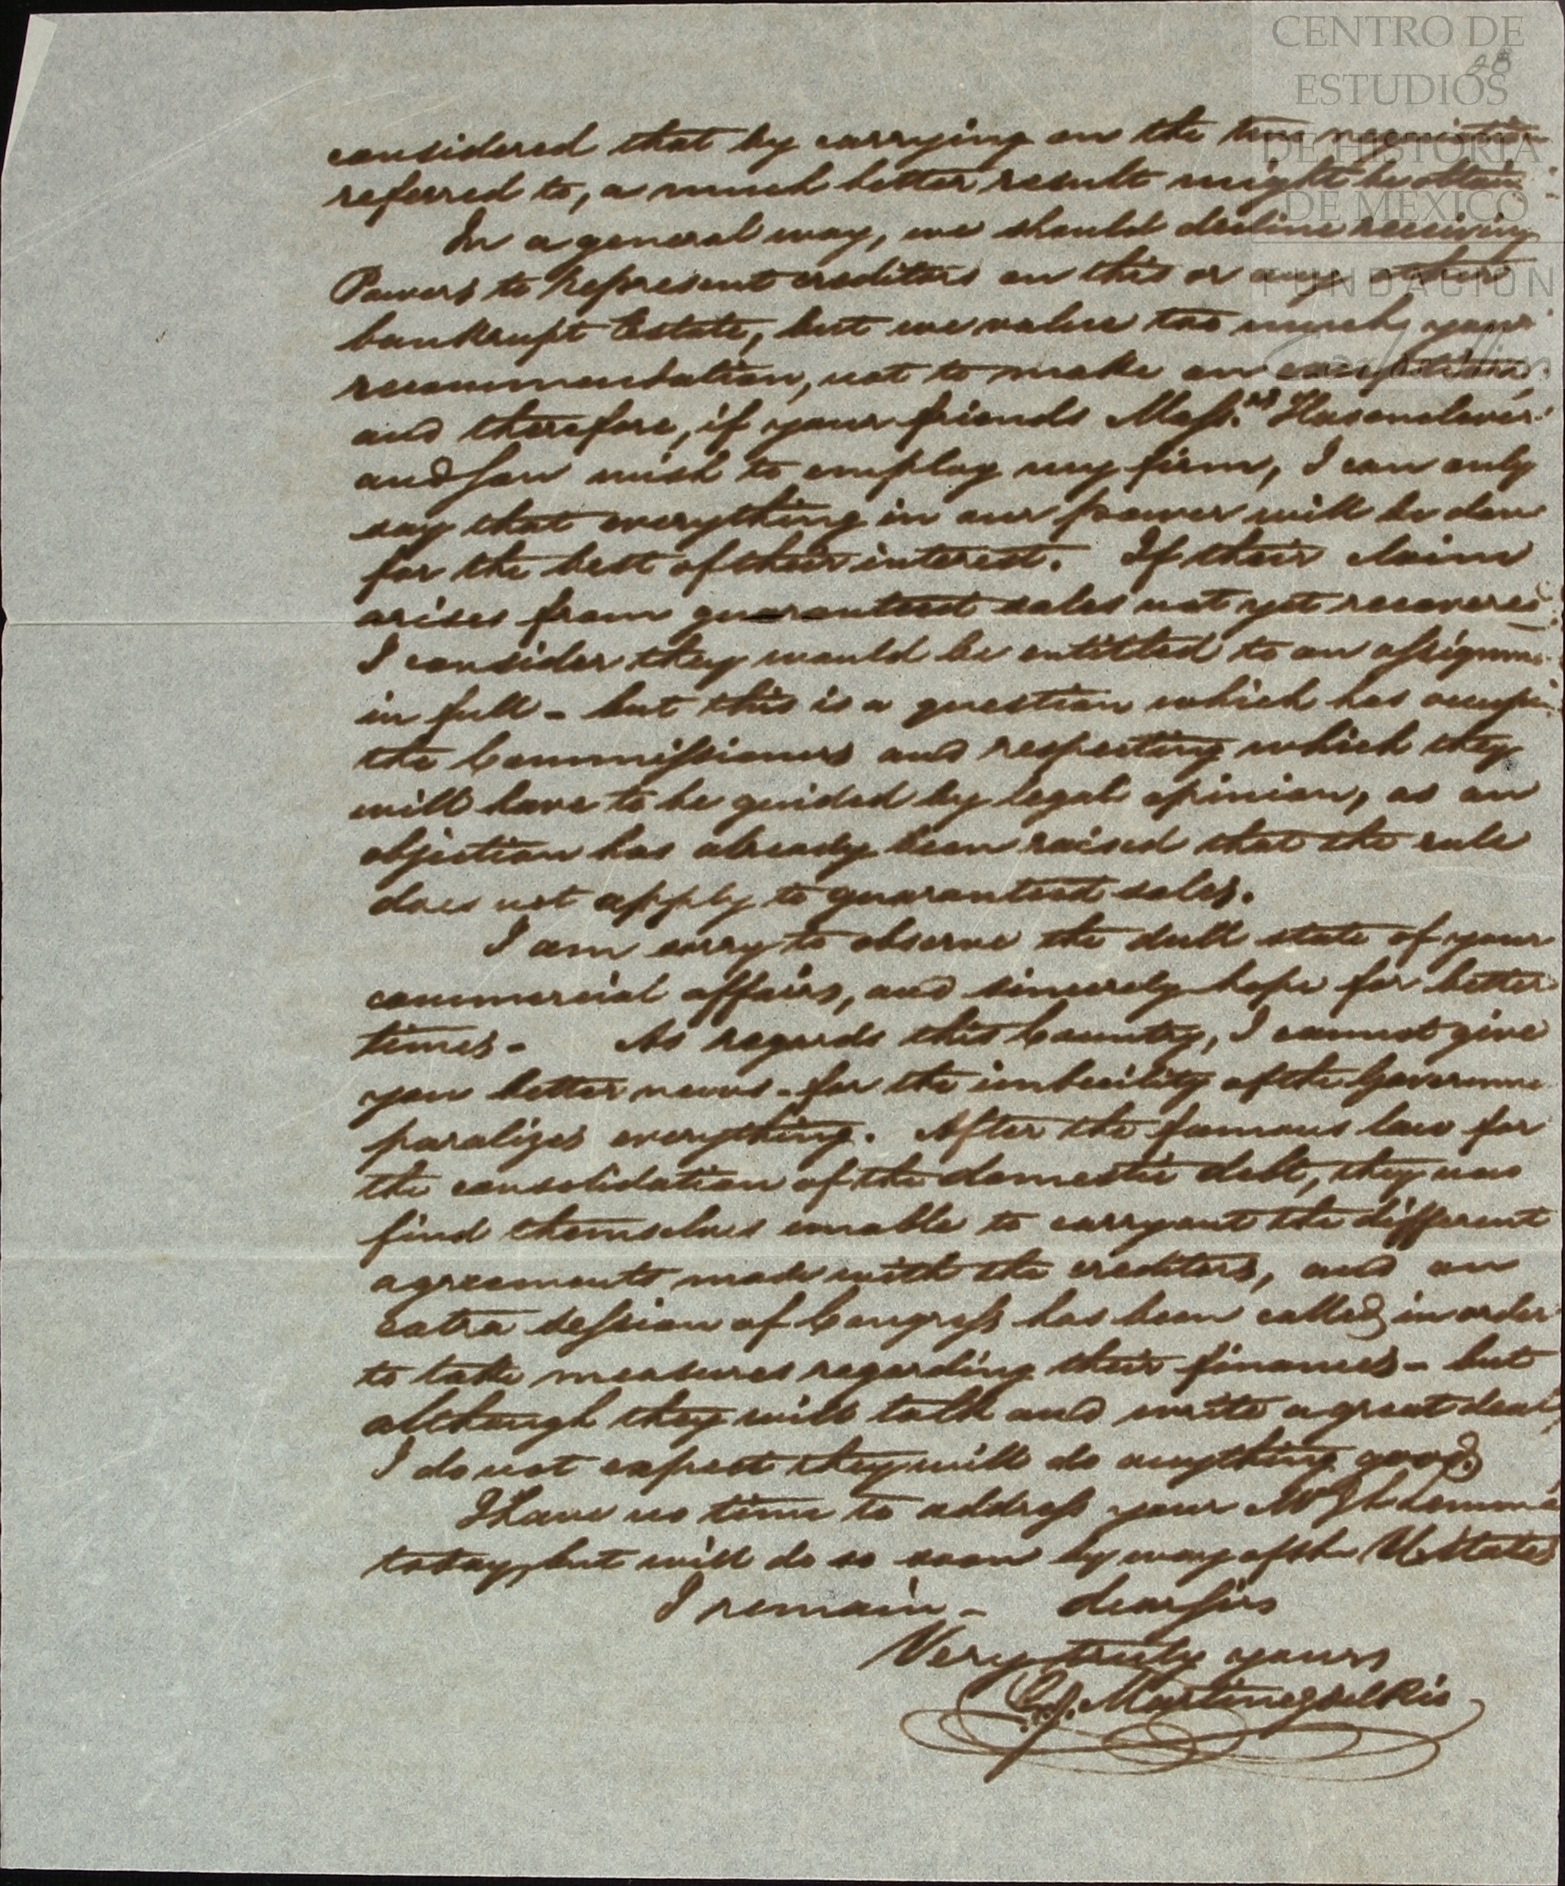 CENTRO DE
ESTUDIOS
DE HISTORIA
DE MEXICO
FUNDACIÓN
28
considered that by carrying on the two negociation
referred to, a much better result might be obtain
In a general way, we should decline receiving
Powers to represent creditors on this or any other
bankrupt Estate, but we value too much your
recommendation, not to make an exception,
and therefore, if your friends Mess.rs Hasenclever
and Son wish to employ my firm, I can only
say that everything in our power will be don
for the best of their interest. If their claim
arises from guaranteed sales not yet recovered
I consider they would be entitled to an assignme
in full - but this is a question which has occupi
the Commissioners and respecting which they
will have to be guided by legal opinion, as an
objection has already been raised that the rule
does not apply to guaranteed sales.
I am sorry to observe the dull state of your
commercial affairs, and sincerely hope for better
times - As regards this Country, I cannot give
you better news - for the imbecility of the Governme
paralizes everything. After the famous law for
the consolidation of the domestic debt, they now
find themselves unable to carry out the different
agreements made with the creditors, and an
extra session of Congress has been called in order
to take measures regarding their finances - but
although they will talk and write a great deal,
I do not expect they will do anything good.
I have no time to address your Mr
today, but will do so soon by way of the U. States
I remain - dear Sirs
Very truly yours
Martinez del Rio